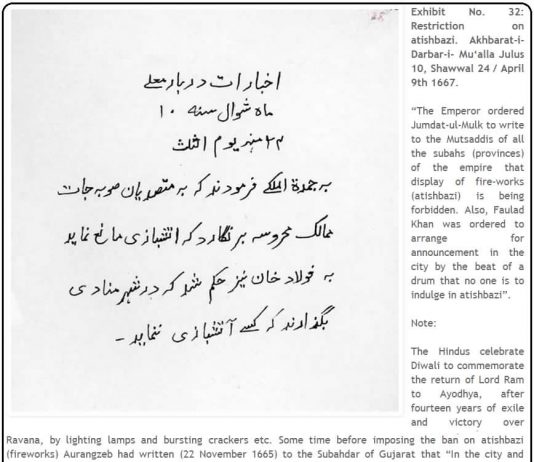 اخبارات دربار معلے
ماه شوال سنه ۱۰
۲۴ یوم الثلث
به جمدة الملکے فرمودند که به متصدیان صوبه جات
ممالک محروسه بر نگارد که اتشبازی مانع نماید
به فولاد خان نیز حکم شد که در شهر منادی
بگذارند که کسے آتشبازی ننماید -
Exhibit No. 32:
Restriction on
atishbazi. Akhbarat-i-
Darbar-i- Mu‘alla Julus
10, Shawwal 24 / April
9th 1667.
“The Emperor ordered
Jumdat-ul-Mulk to write
to the Mutsaddis of all
the subahs (provinces)
of the empire that
display of fire-works
(atishbazi) is being
forbidden. Also, Faulad
Khan was ordered to
arrange for
announcement in the
city by the beat of a
drum that no one is to
indulge in atishbazi”.
Note:
The Hindus celebrate
Diwali to commemorate
the return of Lord Ram
to Ayodhya, after
fourteen years of exile
and victory over
Ravana, by lighting lamps and bursting crackers etc. Some time before imposing the ban on atishbazi
(fireworks) Aurangzeb had written (22 November 1665) to the Subahdar of Gujarat that “In the city and